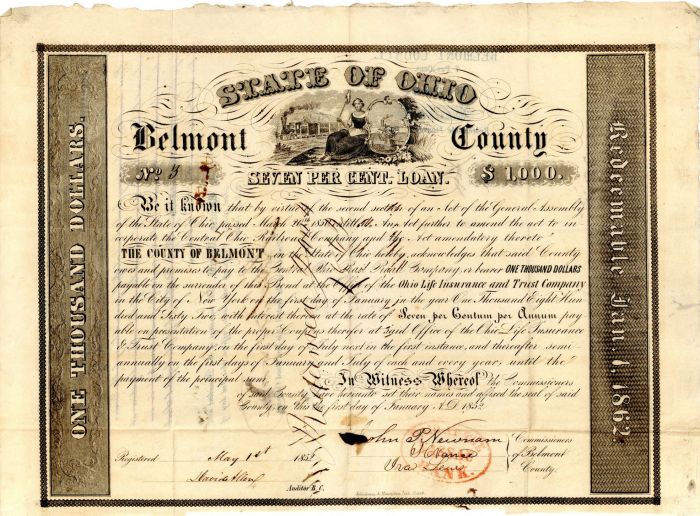 STATE OF OHIO
Belmont County
No 3 SEVEN PER CENT. LOAN. $ 1,000.
ONE THOUSAND DOLLARS.
Be it known that by virtue of the second section of an Act of the General Assembly
of the State of Ohio passed March 20th 1850 entitled An Act further to amend the act to in
corporate the Central Ohio Railroad Company and the Act amendatory thereto
THE COUNTY OF BELMONT in the State of Ohio hereby acknowledges that said County
owes and promises to pay to the Central Ohio Rail Road Company, or bearer ONE THOUSAND DOLLARS
payable on the surrender of this Bond at the Office of the Ohio Life Insurance and Trust Company
in the City of New York on the first day of January in the year One Thousand Eight Hun
dred and Sixty Two, with interest thereon at the rate of Seven per Centum per Annum pay
able on presentation of the proper Coupons therefor at said Office of the Ohio Life Insurance
& Trust Company, on the first day of July next in the first instance, and thereafter semi-
annually on the first days of January and July of each and every year, until the
payment of the principal sum.
In Witness Whereof the Commissioners
of said County have hereunto set their names and affixed the seal of said
County, on this the first day of January A.D. 1852
John P. Newnam
Ira Lewis
Commissioners
of Belmont
County.
Registered May 1st 1852
Auditor B. C.
Redeemable Jan 1, 1862.